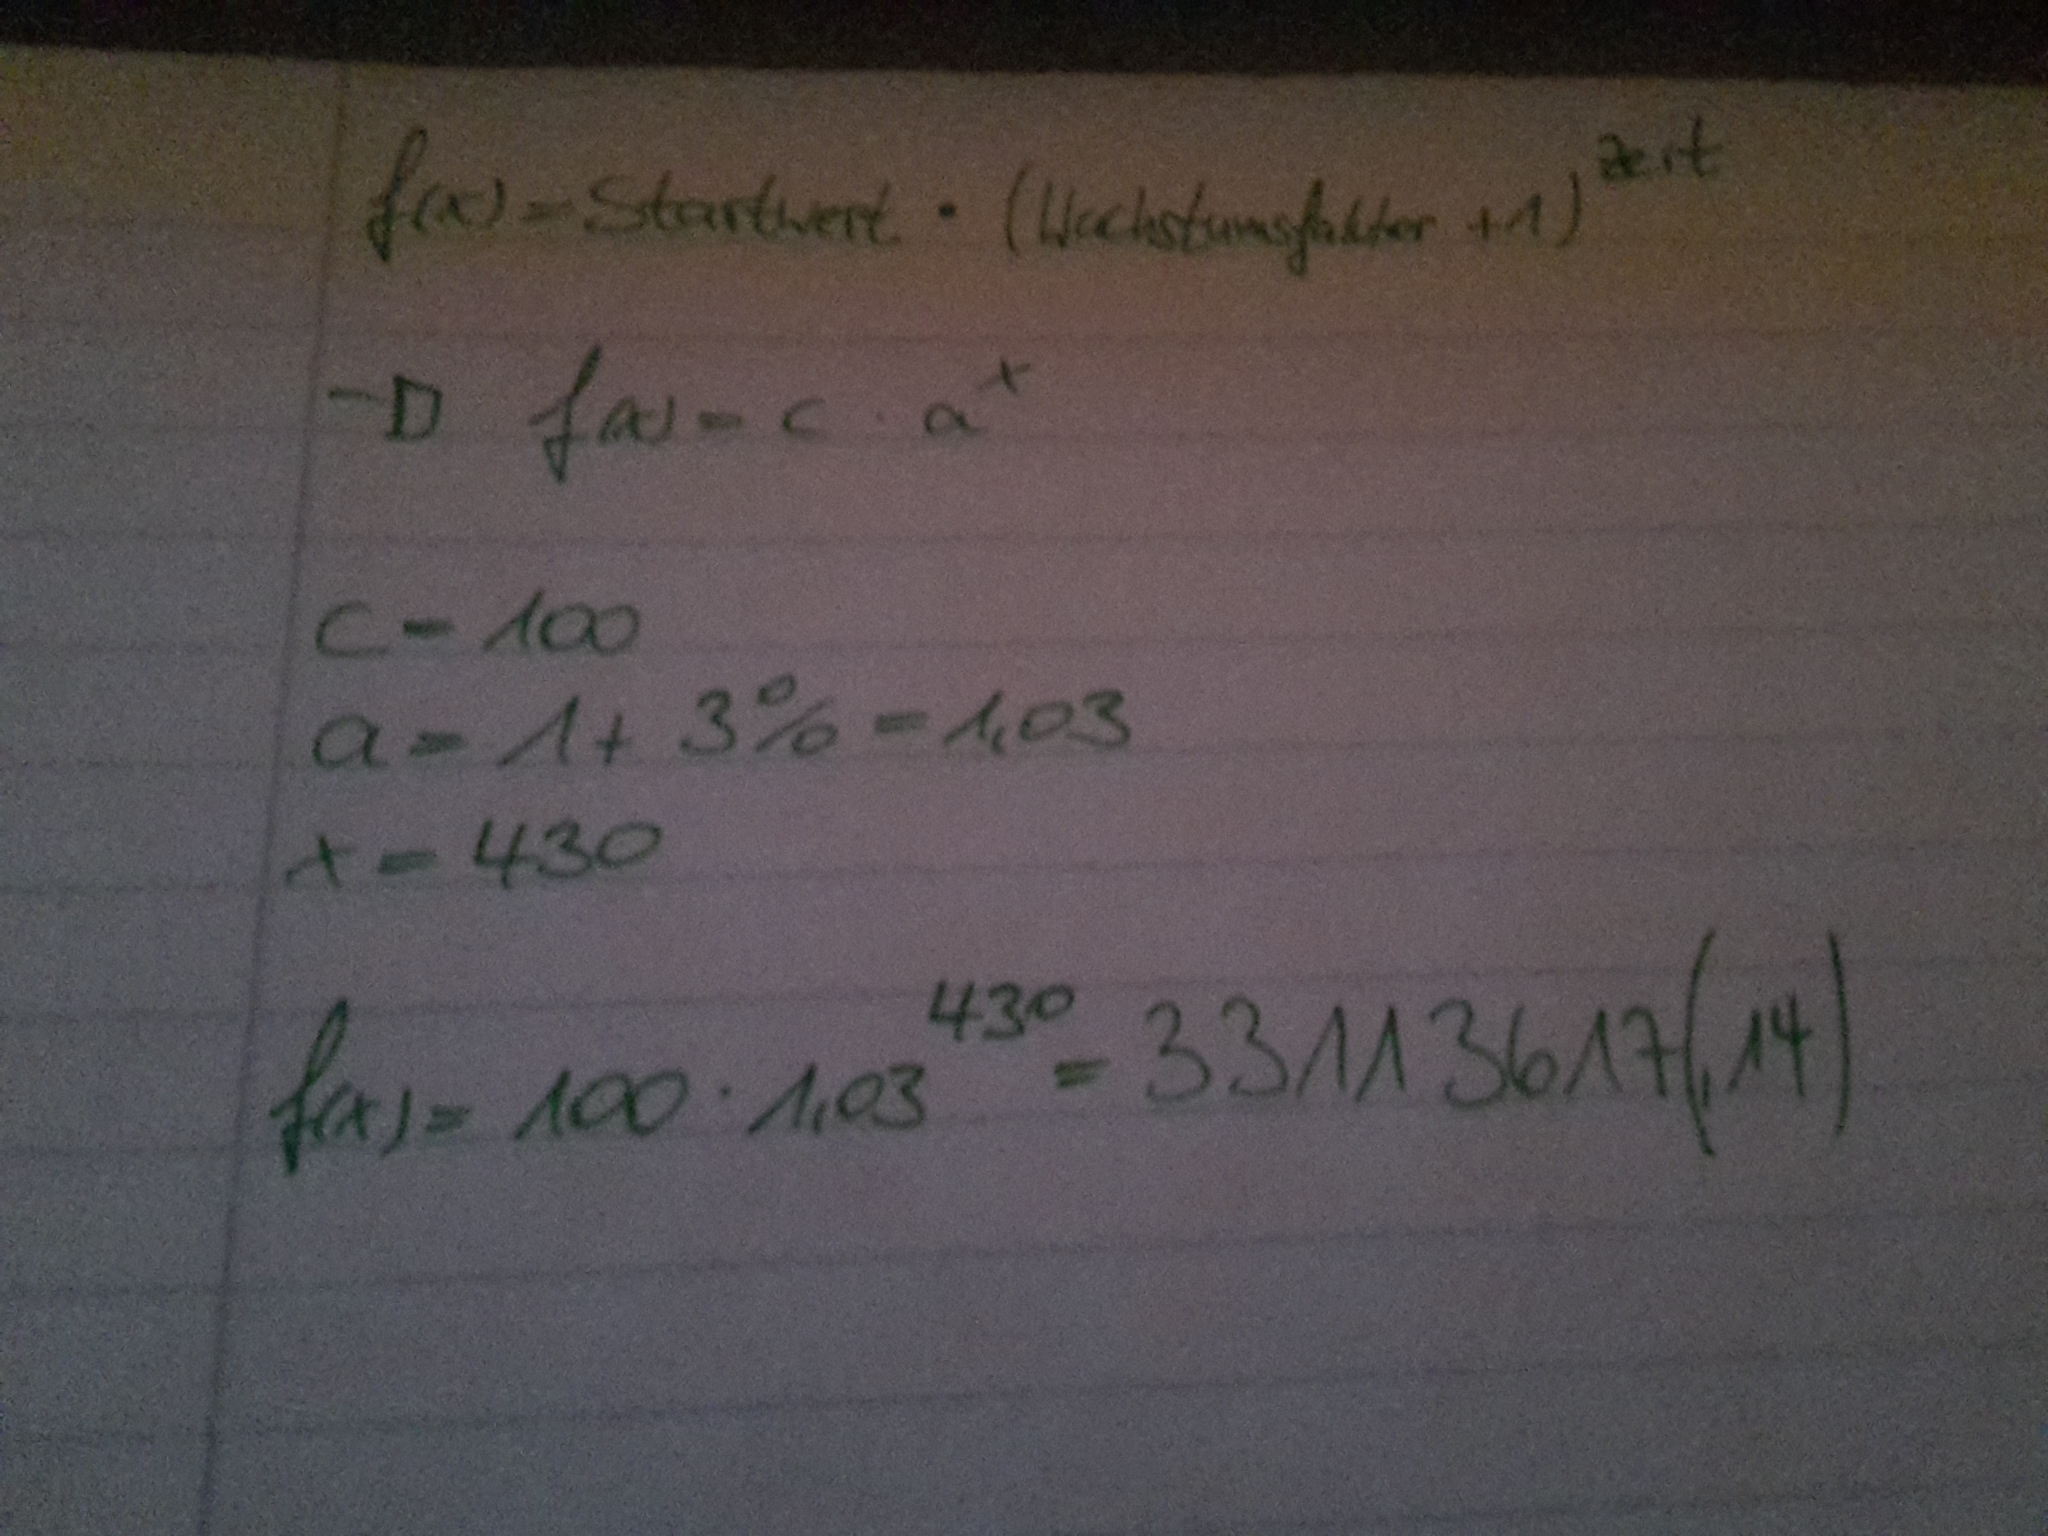 f(x) = Startwert · (Wachstumsfaktor + 1)^Zeit
→ f(x) = c · a^x
c = 100
a = 1 + 3% = 1,03
x = 430
f(x) = 100 · 1,03^430 = 33113617(,14)